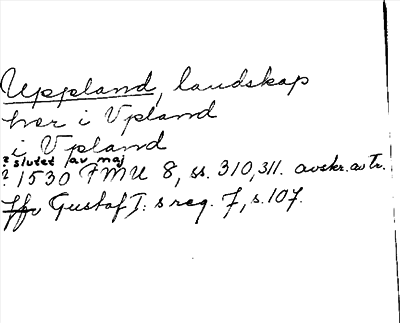 Uppland, landskap
her i Vpland
i Vpland
? slutet av maj
? 1530 FMU 8, ss. 310, 311. avskr. av tr.
Jfr Gustaf I: s reg. 7, s. 107.